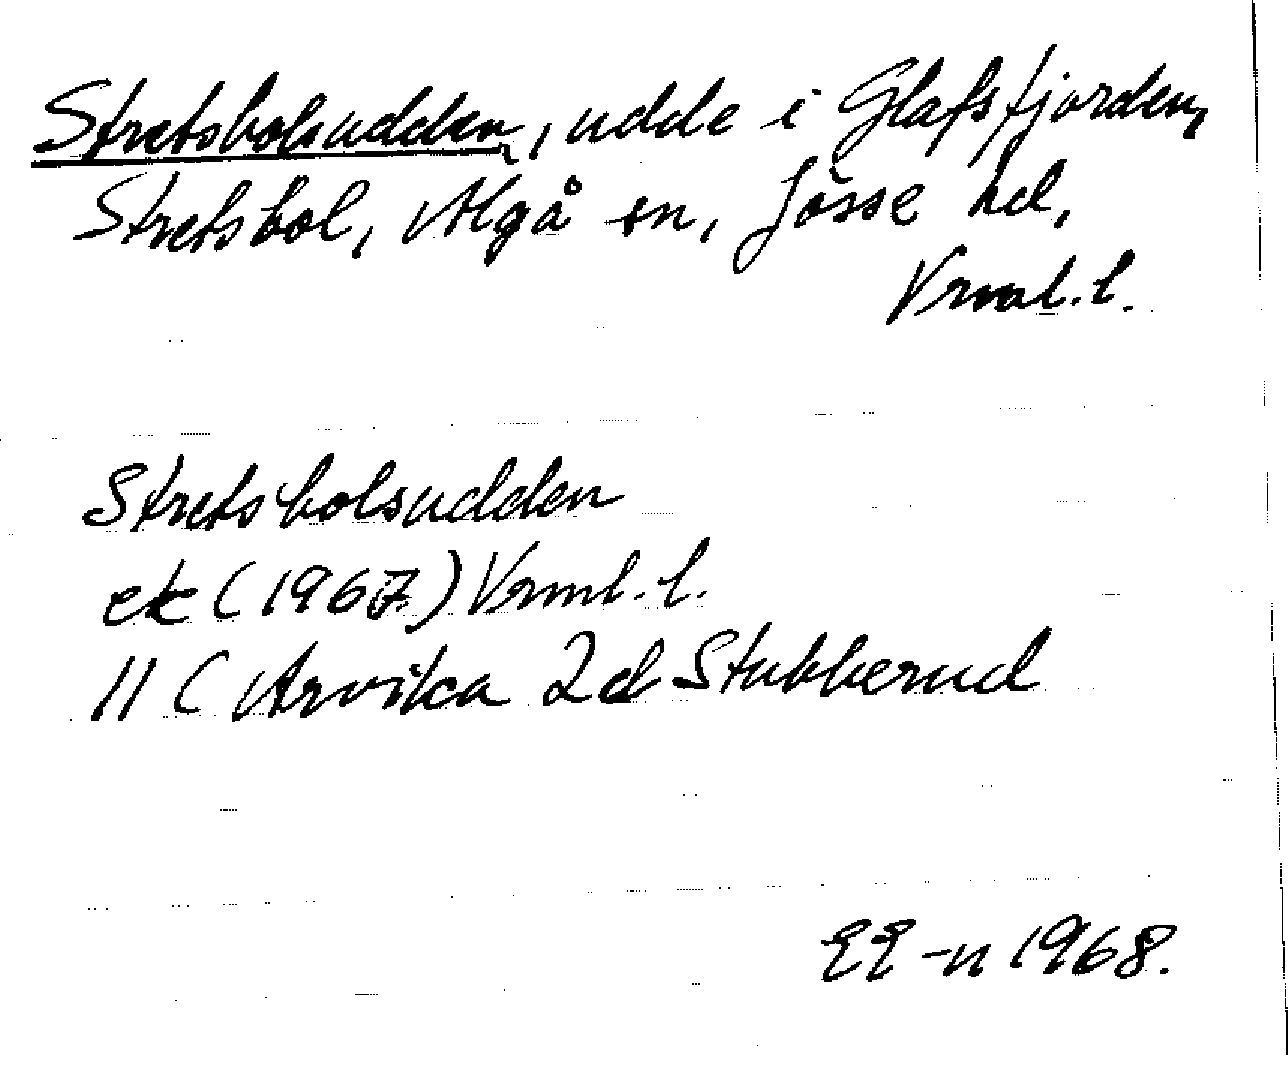 Stretsbolsudden, udde i Glafsfjorden,
Stretsbol, Älgå sn, Jösse hd,
Vrml.l.
Stretsbolsudden
ek (1967) Vrml.l.
11 C Arvika 2d Stubberud
EE-n 1968.